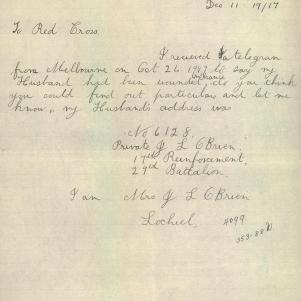 Dec 11 19/17
To Red Cross.
I received a telegram
from Melbourne on Oct 26 1917 to say my
Husband had been wounded, in France
do you think
you could find out particulars and let me
know, my Husband's address was
No 6128.
Private J L O'Brien.
17th Reinforcement.
27th Battalion.
I am Mrs J L O'Brien
Lochiel.
4099